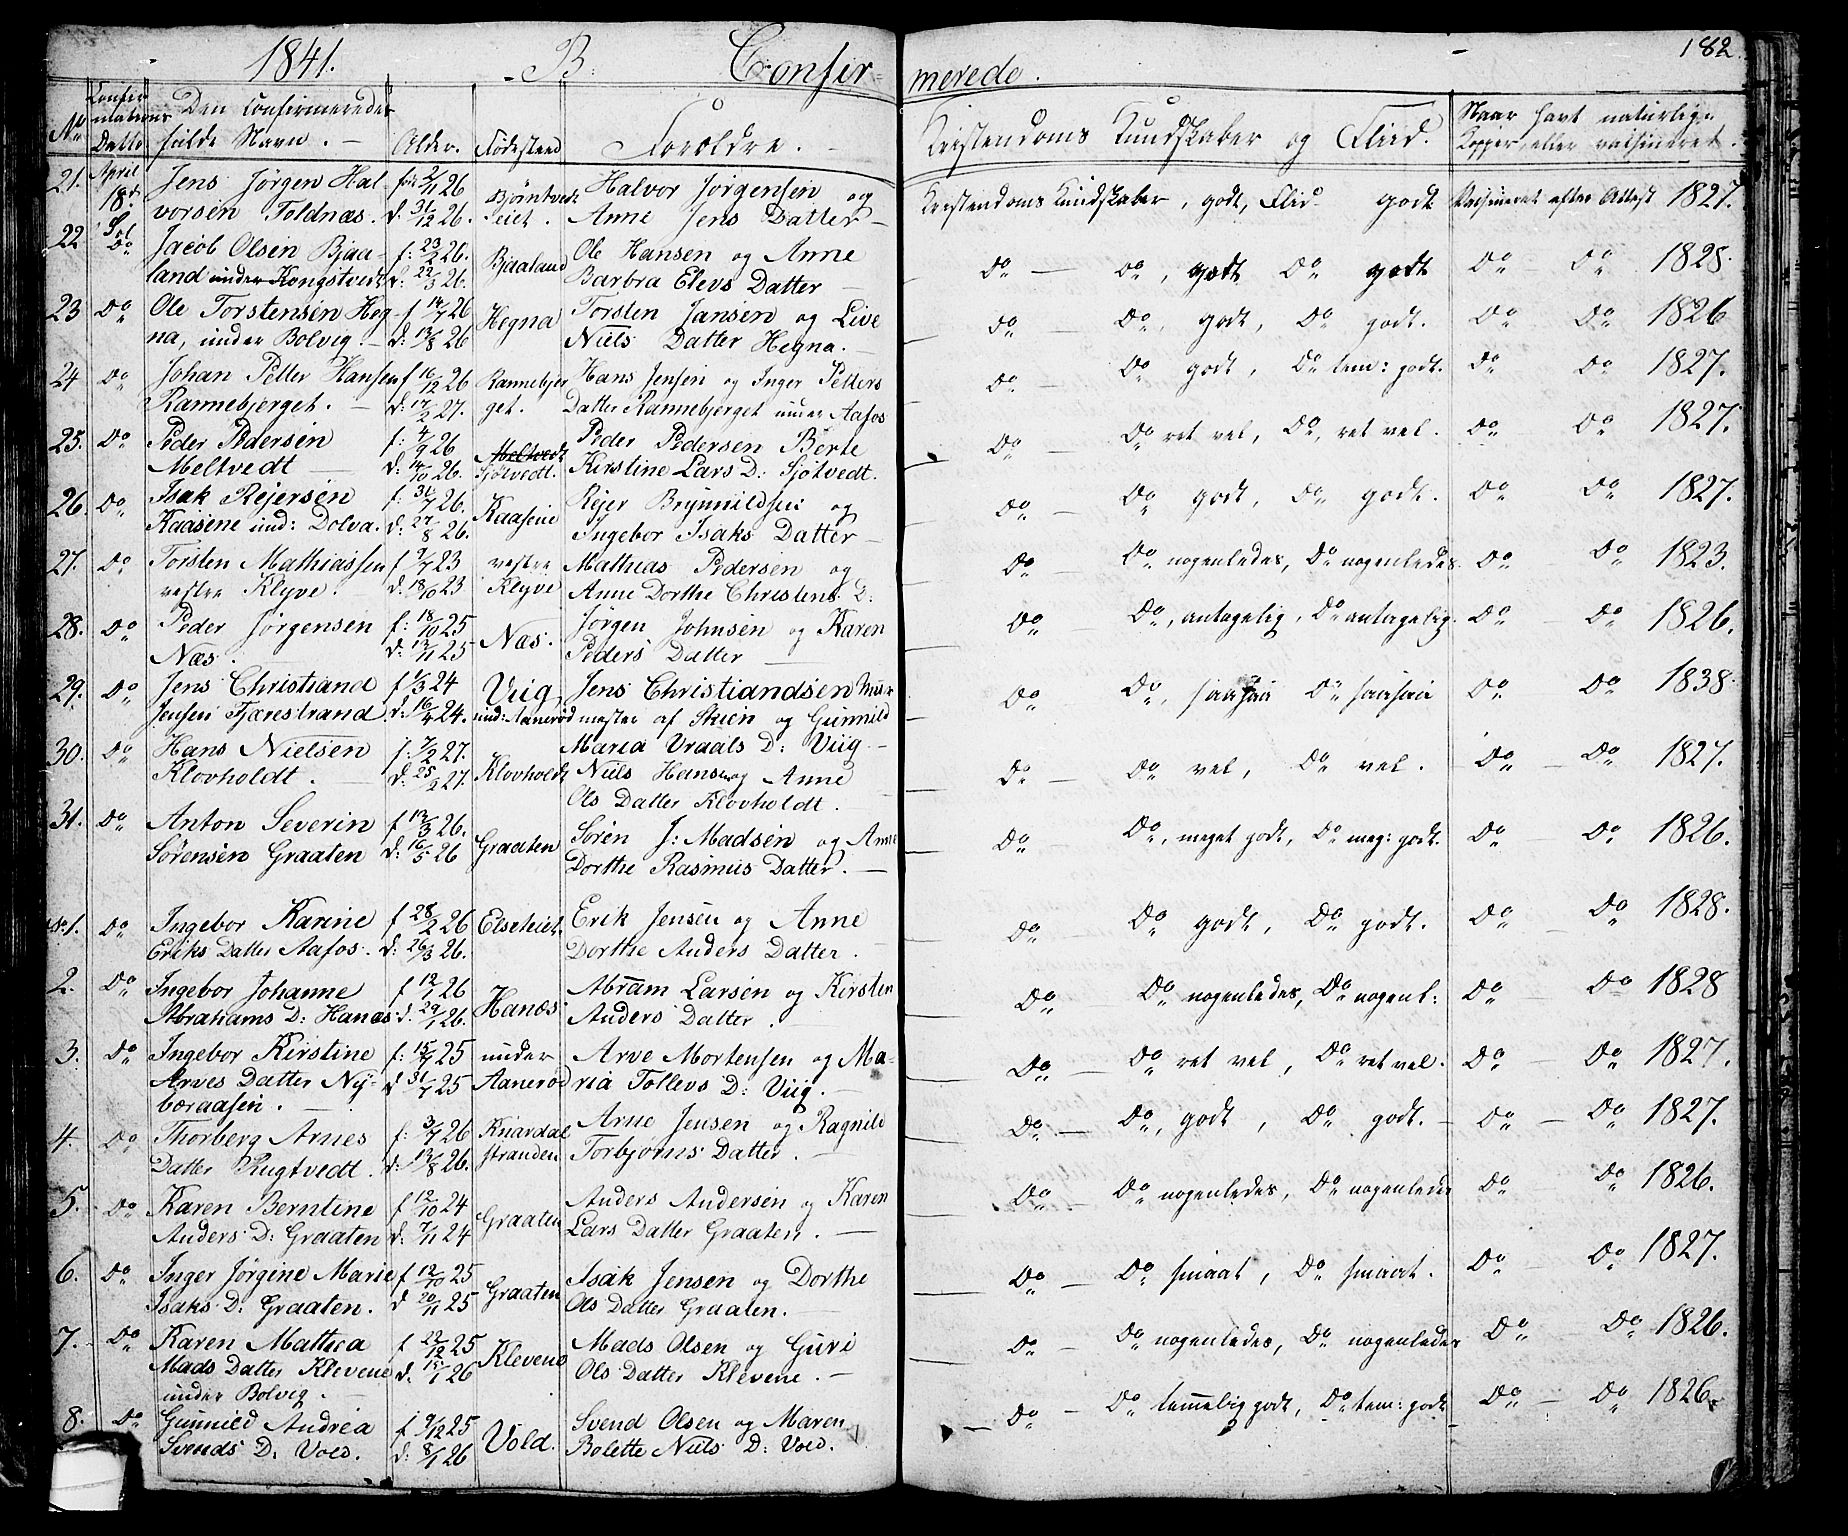 1841. B. Confirmerede. 182.
No Confirmations Datto Den Confirmeredes fulde Navn. Alder. Födestæd Forældre. Kristendoms Kundskaber og Fliid. Naar havt naturlige Kopper, eller vaksineret.
21. April 18d Jens Jörgen Hal- föd 2/11 26 Björntvedt Halvor Jörgensen og Kristendoms Kundskaber, godt, Flid godt Vaksineret efter Attest 1827.
vorsen Foldnæs. d: 31/12 26. Seiet. Anne Jens Datter
22 Do Jacob Olsen Bjaa- f: 23/2 26. Bjaaland Ole Hansen og Anne Do Do, godt Do godt Do Do 1828.
land under Kongstvedt d: 22/3 26. Barbra Elevs Datter
23 Do Ole Torstensen Heg- f 14/7 26 Hegna Torsten Jansen og Live Do Do, godt, Do godt. Do Do 1826
na, under Bolvig. d: 13/8 26 Niels Datter Hegna.
24 Do Johan Petter Hansen f 16/12 26 Rannebjer Hans Jensen og Inger Petters Do Do godt, Do tem: godt. Do Do 1827.
Rannebjerget. d: 17/2 27. get. Datter Rannebjerget under Aafos
25. Do Peder Pedersen f: 4/9 26 Meltvedt Peder Pedersen Berte Do Do ret vel, Do, ret vel. Do Do 1827.
Meltvedt d: 14/10 26. Sjötvedt. Kirstine Lars D: Sjötvedt.
26. Do Isak Rejersen f: 31/7 26. Kaasene Rejer Brynnildsen og Do Do godt, Do godt. Do Do 1827.
Kaasene und: Dolva. d: 27/8 26. Ingebor Isaks Datter
27. Do Torsten Mathiassen f 9/7 23 vestre Mathias Pedersen og Do Do nogenledes, Do nogenledes. Do Do 1823.
vestre Klyve. d: 18/10 23 Klyve Anne Dorthe Christens D:
28. Do Peder Jörgensen f: 18/10 25 Næs. Jörgen Johnsen og Karen Do Do, antagelig, Do antagelig. Do Do 1826.
Næs. d: 12/11 25 Peders Datter
29. Do Jens Christiand f 1/3 24 Viig, Jens Christiandsen Mur Do Do, saasaa Do saasaa Do Do 1838.
Jensen Fjærestrand. d: 16/4 24. und: Aanerød mester af Skien og Gunnild
Maria Vraals D: Viig.
30. Do Hans Nielsen f: 7/2 27. Klovholdt Niels Hansen og Anne Do Do vel, Do vel. Do Do 1827.
Klovholdt. d: 25/2 27. Ols Datter Klovholdt.
31. Do Anton Severin f 12/3 26. Graaten Sören J: Madsen og Anne Do Do, meget godt, Do meg: godt. Do Do 1826.
Sörensen Graaten d: 16/5 26 Dorthe Rasmus Datter.
No 1. Do Ingebor Karine f 28/2 26 Elseheiet. Erik Jensen og Anne Do Do godt, Do godt. Do Do 1828.
Eriks Datter Aafos. d: 26/3 26. Dorthe Anders Datter.
2. Do Ingebor Johanne f 12/1 26 Hanæs Abram Larsen og Kirsten Do Do nogenledes, Do nogenl: Do Do 1828
Abrahams D: Hanæs. d. 29/1 26. Anders Datter.
3. Do Ingebor Kirstine f: 15/7 25 under Arve Mortensen og Ma- Do Do ret vel, Do ret vel. Do Do 1827.
Arves Datter Ny- d 31/7 25 Aanerød ria Tollevs D: Viig.
beraasen.
4. Do Thorberg Arnes f: 3/7 26 Knardal Arne Jensen og Ragnild Do Do, godt, Do godt. Do Do 1827.
Datter Rugtvedt. d: 13/8 26. stranden Torbjörns Datter.
5. Do Karen Berntine f 12/10 24 Graaten Anders Andersen og Karen Do Do nogenledes, Do nogenledes Do Do 1826.
Anders D: Graaten d: 7/11 24 Lars Datter Graaten.
6. Do Inger Jörgine Marie f 12/10 25 Graaten Isak Jensen og Dorthe Do Do smaat, Do smaat. Do Do 1827.
Isaks D: Graaten. d 20/11 25 Ols Datter Graaten.
7. Do Karen Mattea f 22/12 25 Klevene Mads Olsen og Guri Do Do nogenledes, Do nogenledes Do Do 1826.
Mads Datter Klevene d. 15/1 26 Ols Datter Klevene.
under Bolvig.
8. Do Gunnild Andrea f 9/12 25 Vold. Svend Olsen og Maren Do Do temmelig godt, Do tem: godt Do Do 1826.
Svends D: Vold. d: 8/1 26 Bolette Niels D: Vold.